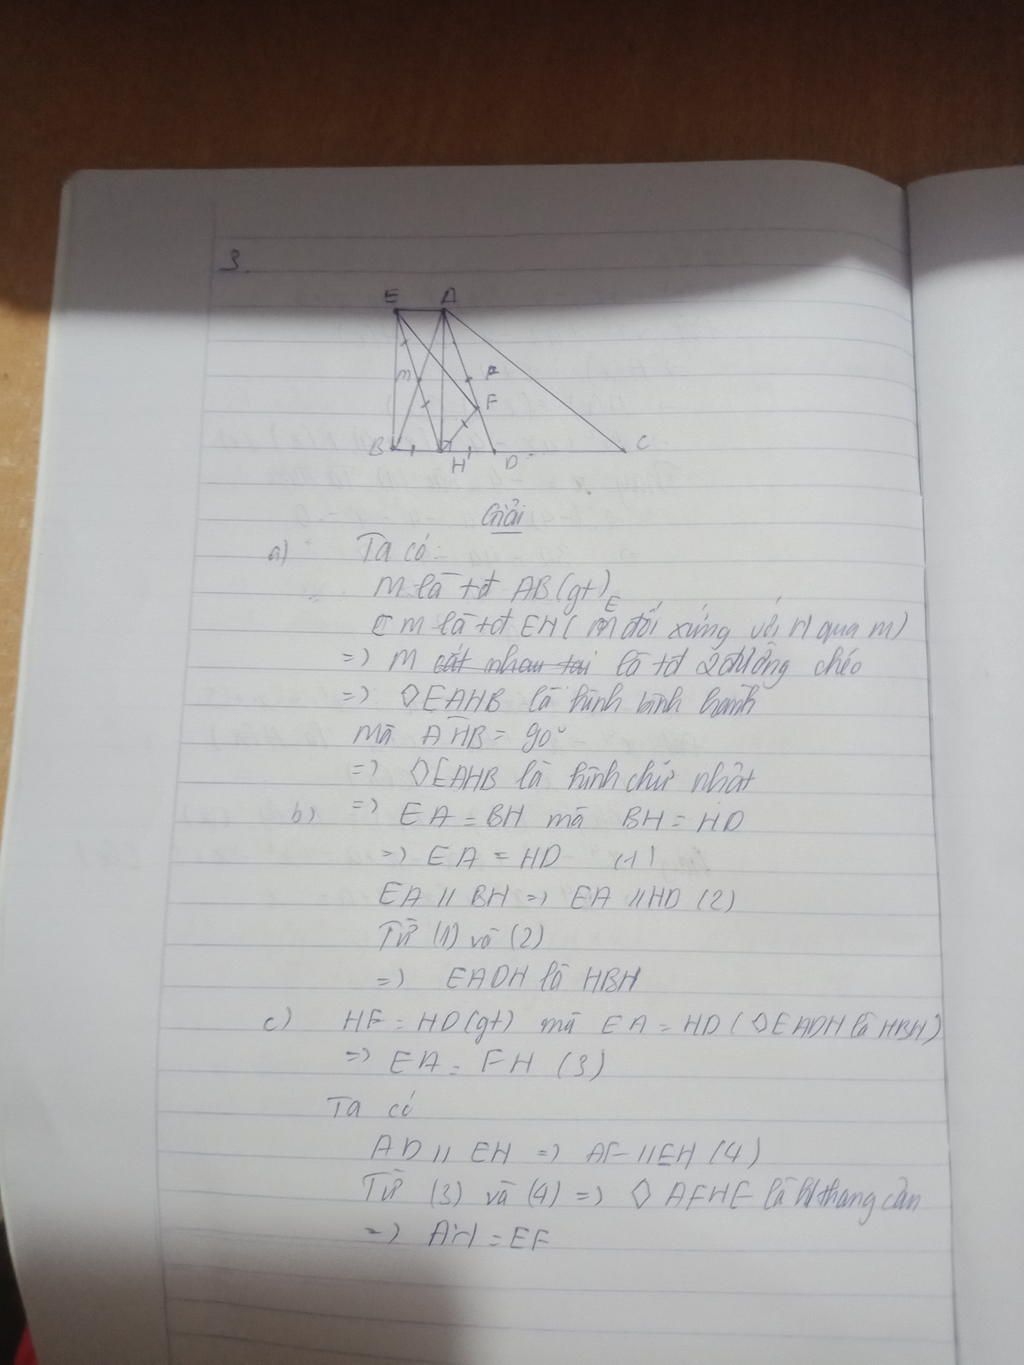 3.
E A
M F
F
B H D C
Giải
a) Ta có:
M là tđ AB (gt)
M là tđ EH (E đối xứng với H qua M)
=> M cắt nhau tại là tđ 2 đường chéo
=> ◇EAHB là hình bình hành
mà AHB = 90°
=> ◇EAHB là hình chữ nhật
b) => EA = BH mà BH = HD
=> EA = HD (1)
EA // BH => EA // HD (2)
Từ (1) và (2)
=> EADH là HBH
c) HF = HD (gt) mà EA = HD (◇EADH là HBH)
=> EA = FH (3)
Ta có
AD // EH => AF // EH (4)
Từ (3) và (4) => ◇ AFHE là thang cân
=> AH = EF